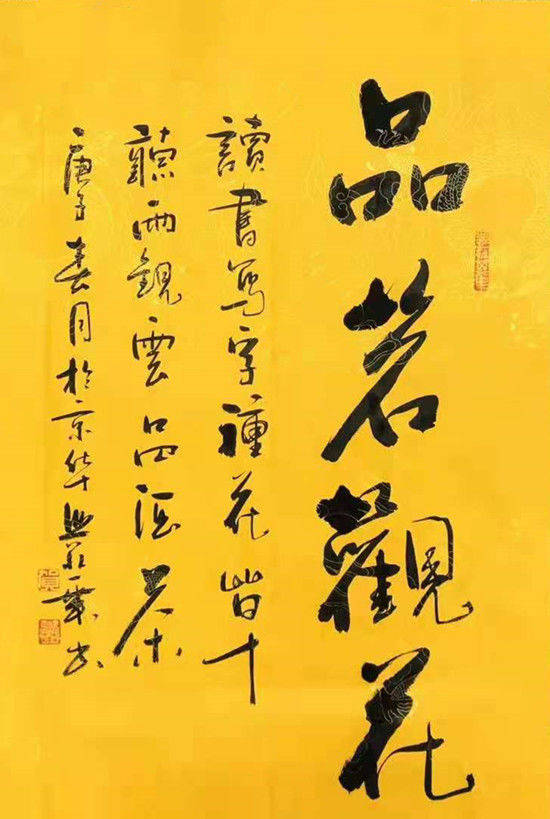 品茗觀花
讀書寫字種花草
聽雨觀雲品酒茶
庚子春月於京华书